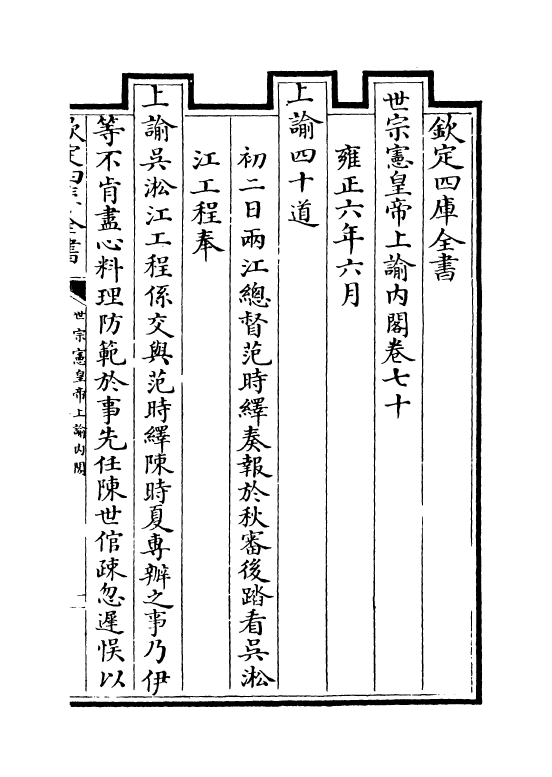 欽定四庫全書
世宗憲皇帝上諭內閣卷七十
雍正六年六月
上諭四十道
初二日兩江總督范時繹奏報於秋審後踏看吳淞
江工程奉
上諭吳淞江工程係交與范時繹陳時夏專辦之事乃伊
等不肯盡心料理防範於事先任陳世倌疎忽遲悞以
欽定四庫全書
世宗憲皇帝上諭內閣